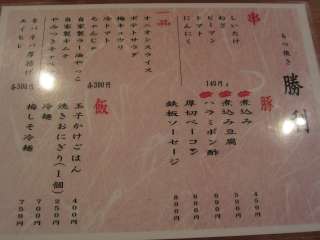 もつ焼き 勝利
串
しいたけ
ねぎ
ピーマン
トマト
にんにく
140円
豚
煮込み 450円
煮込み豆腐 550円
ハラミポン酢
厚切ベーコン
鉄板ソーセージ
一品
オニオンスライス
ポテトサラダ
梅キュウリ
冷トマト
ちゃんじゃ
自家製ラー油やっこ
自家製キムチ
やみつきキャベツ
各300円
ネバネバ厚揚げ
エイヒレ
各390円
飯
玉子かけごはん 400円
焼きおにぎり(1個) 250円
冷麺 700円
梅しそ冷麺 750円